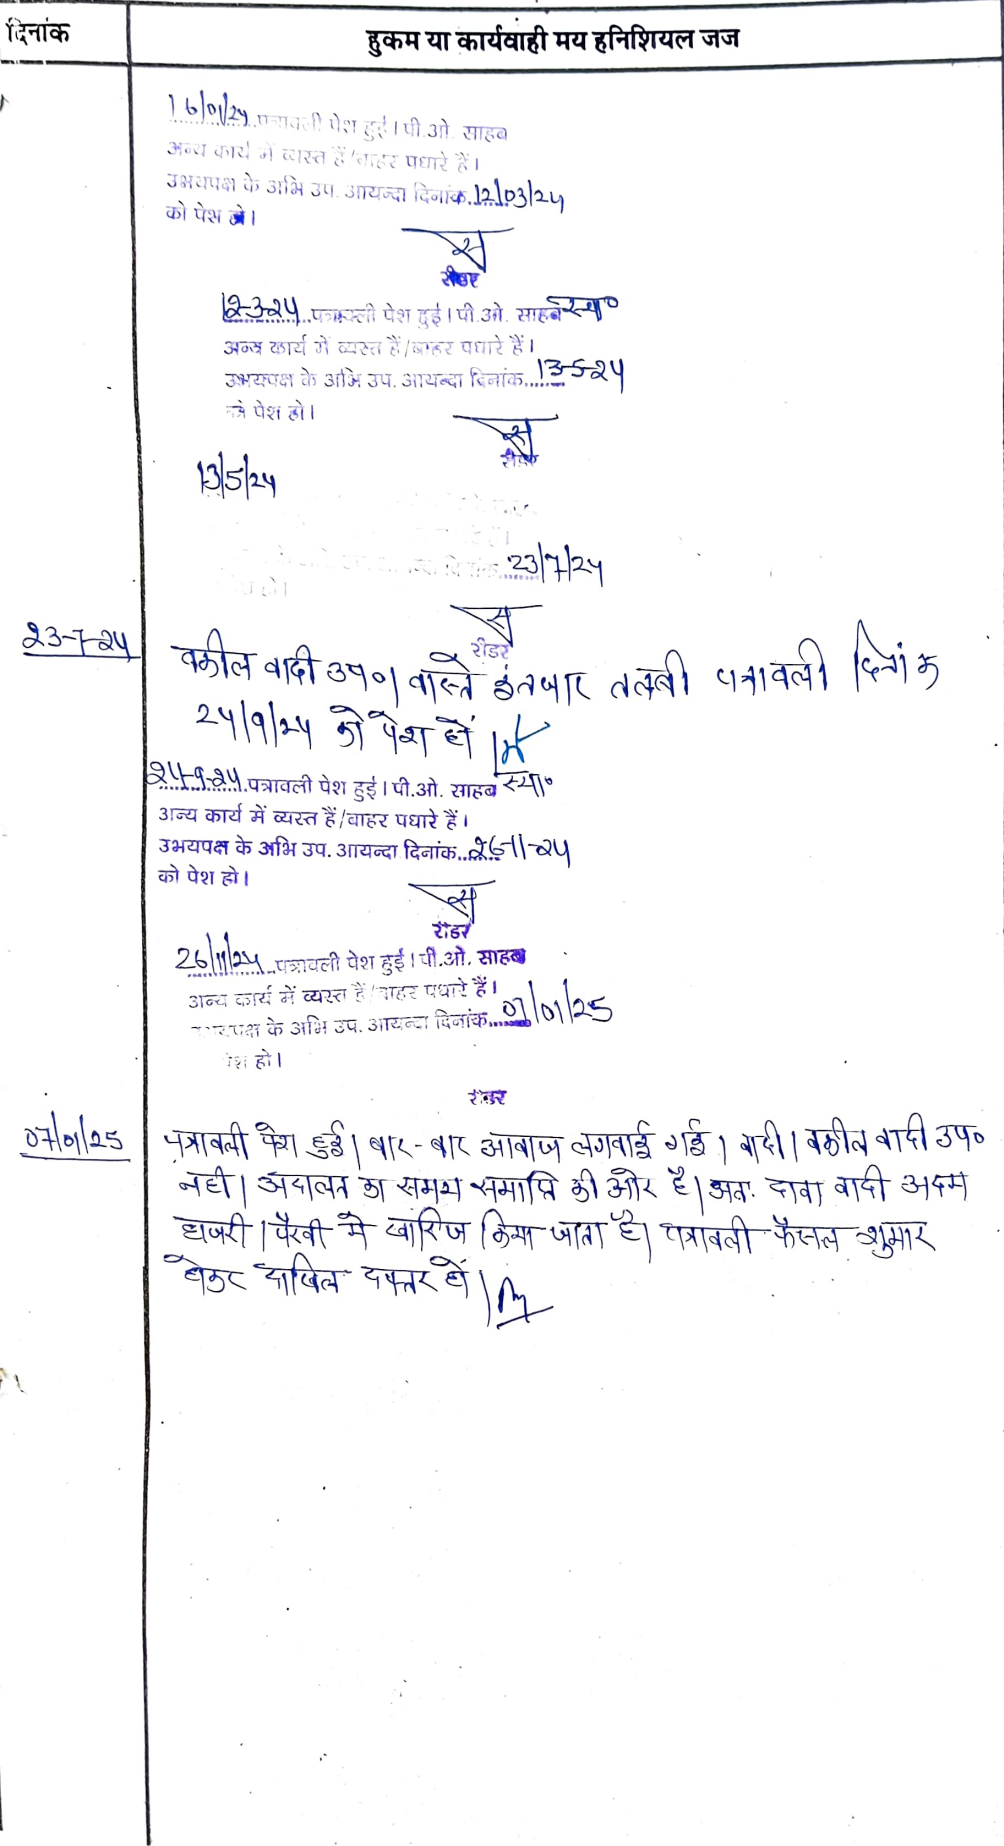 दिनांक
हुकम या कार्यवाही मय हनिशियल जज
16/01/24 पत्रावली पेश हुई। पी.ओ. साहब
अन्य कार्य में व्यस्त हैं/बाहर पधारे हैं।
उभयपक्ष के अभि उप. आयन्दा दिनांक 12/03/24
को पेश हो।
रीडर
12-3-24 पत्रावली पेश हुई। पी.ओ. साहब स्था०
अन्य कार्य में व्यस्त हैं/बाहर पधारे हैं।
उभयपक्ष के अभि उप. आयन्दा दिनांक 13-5-24
को पेश हो।
रीडर
13/5/24
दिनांक 23/7/24
हो।
रीडर
23-7-24
वकील वादी उप०। वास्ते इंतजार तलबी पत्रावली दिनांक
24/9/24 को पेश हो।
24-9-24 पत्रावली पेश हुई। पी.ओ. साहब स्था०
अन्य कार्य में व्यस्त हैं/बाहर पधारे हैं।
उभयपक्ष के अभि उप. आयन्दा दिनांक 26-11-24
को पेश हो।
रीडर
26/11/24 पत्रावली पेश हुई। पी.ओ. साहब
अन्य कार्य में व्यस्त हैं/बाहर पधारे हैं।
उभयपक्ष के अभि उप. आयन्दा दिनांक 07/01/25
पेश हो।
रीडर
07/01/25
पत्रावली पेश हुई। बार-बार आवाज लगवाई गई। वादी। वकील वादी उप०
नही। अदालत का समय समाप्ति की ओर है। अतः दावा वादी अदम
हाजरी। पैरवी मे खारिज किया जाता है। पत्रावली फैसल शुमार
होकर दाखिल दफ्तर हो।